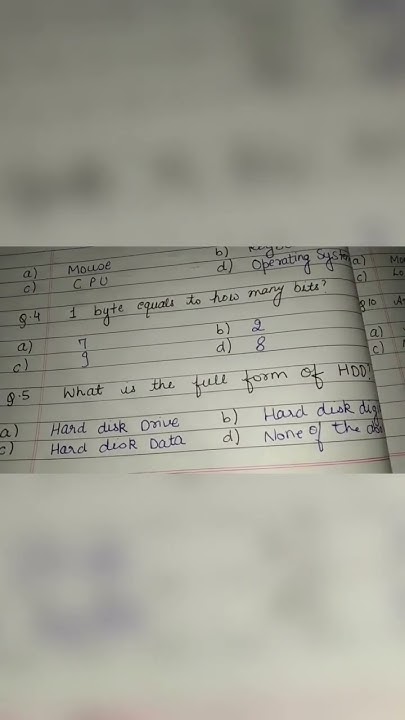 b)
a) Mouse d) Operating System
c) CPU
Q.4 1 byte equals to how many bits?
a) 7 b) 2
c) 9 d) 8
Q.5 What is the full form of HDD?
a) Hard disk Drive b) Hard disk
c) Hard disk Data d) None of the
a)
c)
Q10
a)
c)